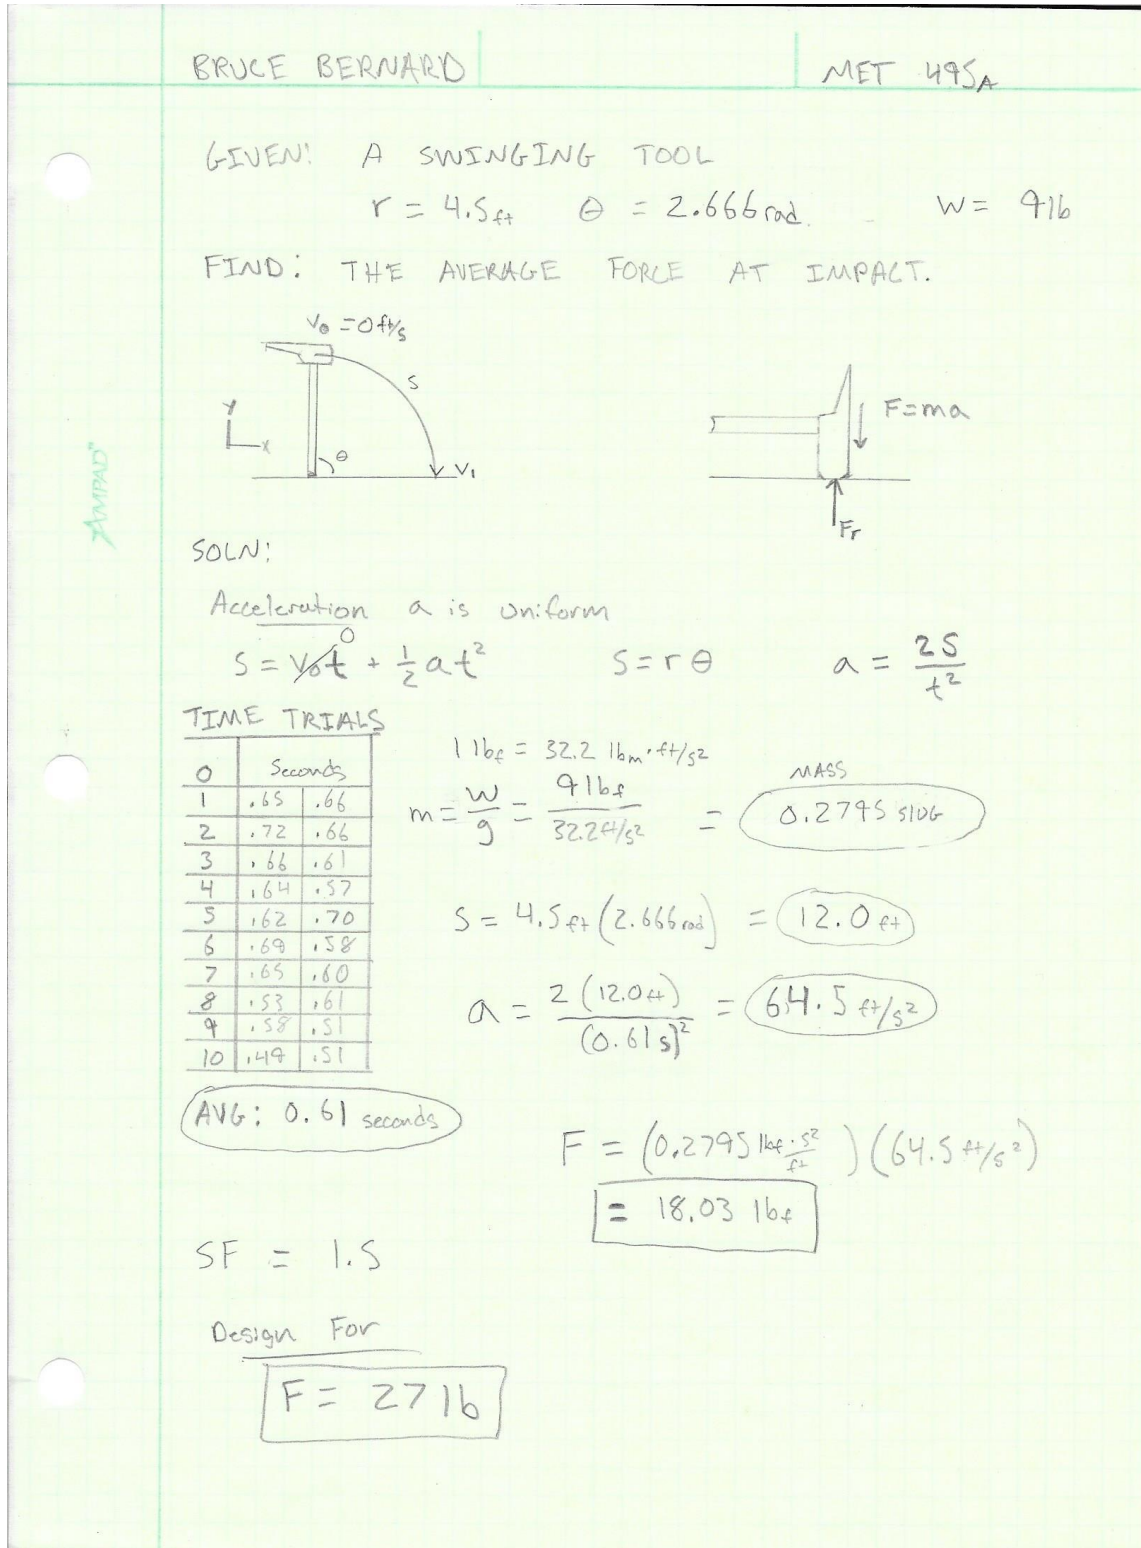 BRUCE BERNARD MET 495A
GIVEN: A SWINGING TOOL
r = 4.5 ft θ = 2.666 rad. W = 9 lb
FIND: THE AVERAGE FORCE AT IMPACT.
V₀ = 0 ft/s
S
Y
X
θ
V₁
F=ma
Fr
AMPAD"
SOLN:
Acceleration a is uniform
S = V₀t + ½ a t² S = r θ a = 2S / t²
0
TIME TRIALS
0 Seconds
1 .65 .66
2 .72 .66
3 .66 .61
4 .64 .57
5 .62 .70
6 .69 .58
7 .65 .60
8 .53 .61
9 .58 .51
10 .49 .51
AVG: 0.61 seconds
1 lbf = 32.2 lbm·ft/s²
MASS
m = W/g = 9 lbf / 32.2 ft/s² = 0.2795 slug
S = 4.5 ft (2.666 rad) = 12.0 ft
a = 2 (12.0 ft) / (0.61 s)² = 64.5 ft/s²
F = (0.2795 lbf·s²/ft) (64.5 ft/s²)
= 18.03 lbf
SF = 1.5
Design For
F = 27 lb